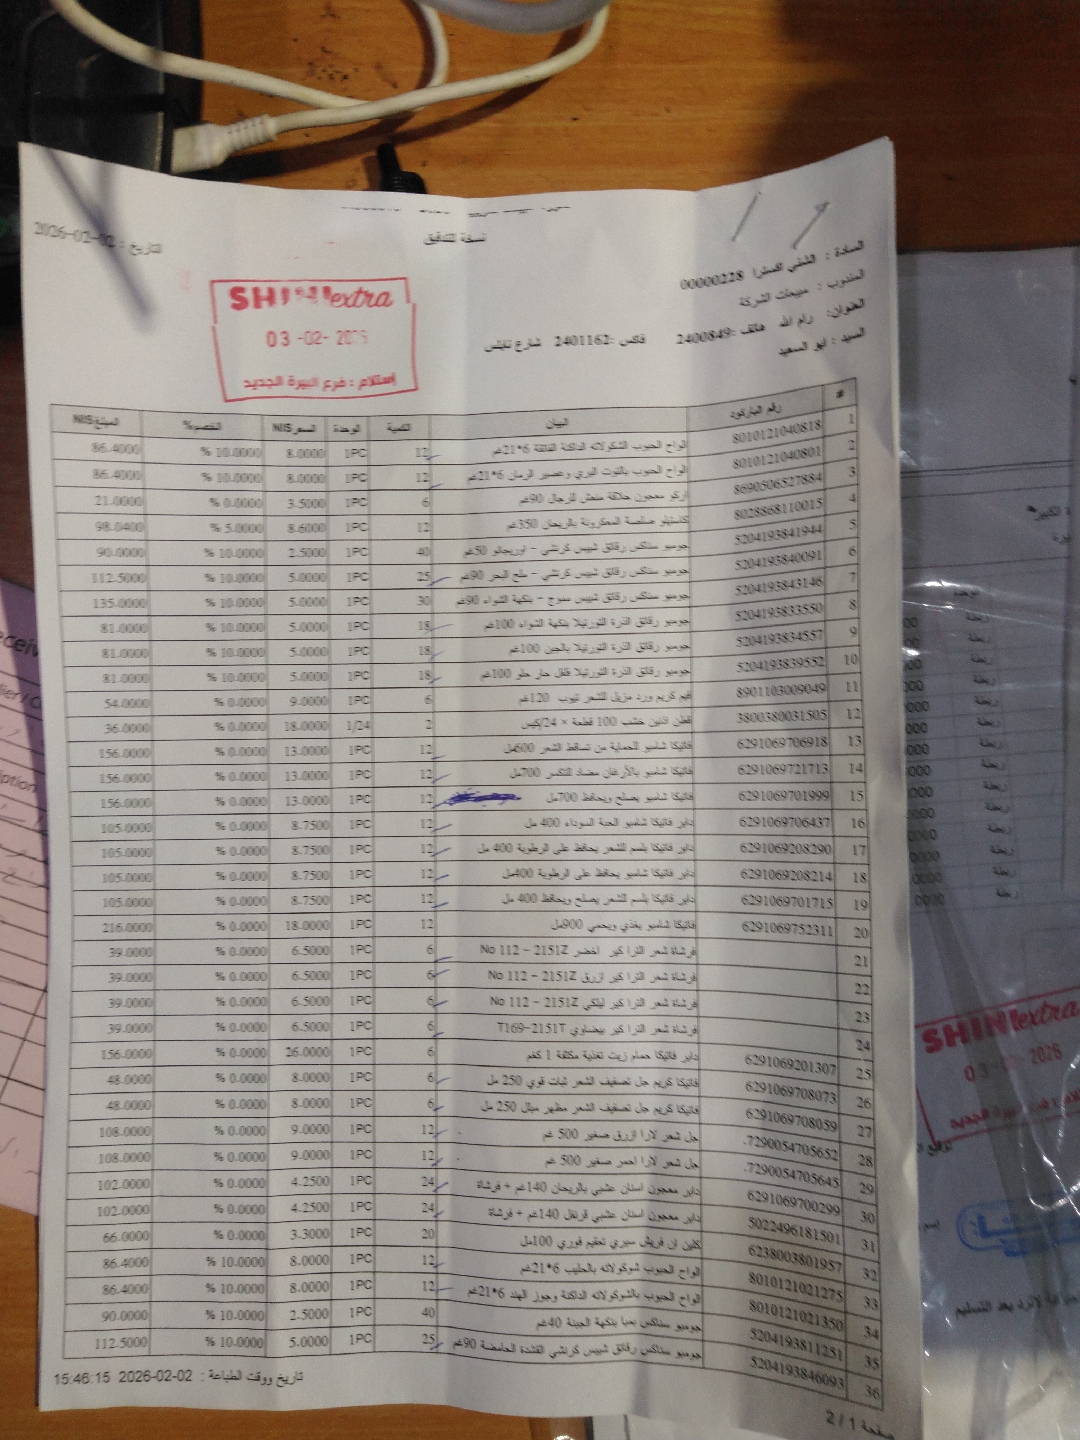 نسخة للتدقيق
التاريخ : 2026-02-02
السادة : الشني اكسترا 00000228
المندوب : مبيعات الشركة
العنوان: رام الله هاتف :2400849 فاكس :2401162 شارع نابلس
السيد : ابو السعيد
SHINI extra
03-02-2026
إستلام : فرع البيرة الجديد
# رقم الباركود البيان الكمية الوحدة السعرNIS الخصم% المبلغNIS
1 8010121040818 الواح الحبوب الشكولاته الداكنة الفائقة 6*21غم 12 1PC 8.0000 % 10.0000 86.4000
2 8010121040801 الواح الحبوب بالتوت البري وعصير الرمان 6*21غم 12 1PC 8.0000 % 10.0000 86.4000
3 8690506527884 اركو معجون حلاقة منعش للرجال 90غم 6 1PC 3.5000 % 0.0000 21.0000
4 8028868110015 كاستيلو صلصة المعكرونة بالريحان 350غم 12 1PC 8.6000 % 5.0000 98.0400
5 5204193841944 جومبو سناكس رقائق شيبس كرنشي - اوريجانو 50غم 40 1PC 2.5000 % 10.0000 90.0000
6 5204193840091 جومبو سناكس رقائق شيبس كرنشي - ملح البحر 90غم 25 1PC 5.0000 % 10.0000 112.5000
7 5204193843146 جومبو سناكس رقائق شيبس سموج - بنكهة الشواء 90غم 30 1PC 5.0000 % 10.0000 135.0000
8 5204193833550 جومبو رقائق الذرة التورتيلا بنكهة الشواء 100غم 18 1PC 5.0000 % 10.0000 81.0000
9 5204193834557 جومبو رقائق الذرة التورتيلا بالجبن 100غم 18 1PC 5.0000 % 10.0000 81.0000
10 5204193839552 جومبو رقائق الذرة التورتيلا فلفل حار حلو 100غم 18 1PC 5.0000 % 10.0000 81.0000
11 8901103009049 فيم كريم ورد مزيل للشعر تيوب 120غم 6 1PC 9.0000 % 0.0000 54.0000
12 3800380031505 قطن اذنين خشب 100 قطعة × 24/كيس 2 1/24 18.0000 % 0.0000 36.0000
13 6291069706918 فاتيكا شامبو للحماية من تساقط الشعر 600مل 12 1PC 13.0000 % 0.0000 156.0000
14 6291069721713 فاتيكا شامبو بالأرغان مضاد للتكسر 700مل 12 1PC 13.0000 % 0.0000 156.0000
15 6291069701999 فاتيكا شامبو يصلح ويحافظ 700مل 12 1PC 13.0000 % 0.0000 156.0000
16 6291069706437 دابر فاتيكا شامبو الحبة السوداء 400 مل 12 1PC 8.7500 % 0.0000 105.0000
17 6291069208290 دابر فاتيكا بلسم للشعر يحافظ على الرطوبة 400 مل 12 1PC 8.7500 % 0.0000 105.0000
18 6291069208214 دابر فاتيكا شامبو يحافظ على الرطوبة 400مل 12 1PC 8.7500 % 0.0000 105.0000
19 6291069701715 دابر فاتيكا بلسم للشعر يصلح ويحافظ 400 مل 12 1PC 8.7500 % 0.0000 105.0000
20 6291069752311 فاتيكا شامبو يغذي ويحمي 900مل 12 1PC 18.0000 % 0.0000 216.0000
21 فرشاة شعر الترا كير اخضر No 112 - 2151Z 6 1PC 6.5000 % 0.0000 39.0000
22 فرشاة شعر الترا كير ازرق No 112 - 2151Z 6 1PC 6.5000 % 0.0000 39.0000
23 فرشاة شعر الترا كير ليلكي No 112 - 2151Z 6 1PC 6.5000 % 0.0000 39.0000
24 فرشاة شعر الترا كير بيضاوي T169-2151T 6 1PC 6.5000 % 0.0000 39.0000
25 6291069201307 دابر فاتيكا حمام زيت تغذية مكثفة 1 كغم 6 1PC 26.0000 % 0.0000 156.0000
26 6291069708073 فاتيكا كريم جل تصفيف الشعر ثبات قوي 250 مل 6 1PC 8.0000 % 0.0000 48.0000
27 6291069708059 فاتيكا كريم جل تصفيف الشعر مظهر مبلل 250 مل 6 1PC 8.0000 % 0.0000 48.0000
28 7290054705652. جل شعر لارا ازرق صغير 500 غم 12 1PC 9.0000 % 0.0000 108.0000
29 7290054705645. جل شعر لارا احمر صغير 500 غم 12 1PC 9.0000 % 0.0000 108.0000
30 6291069700299 دابر معجون اسنان عشبي بالريحان 140غم + فرشاة 24 1PC 4.2500 % 0.0000 102.0000
31 5022496181501 دابر معجون اسنان عشبي قرنفل 140غم + فرشاة 24 1PC 4.2500 % 0.0000 102.0000
32 6238003801957 كلين ان فريش سبري تعقيم فوري 100مل 20 1PC 3.3000 % 0.0000 66.0000
33 8010121021275 الواح الحبوب شوكولاته بالحليب 6*21غم 12 1PC 8.0000 % 10.0000 86.4000
34 8010121021350 الواح الحبوب بالشوكولاته الداكنة وجوز الهند 6*21غم 12 1PC 8.0000 % 10.0000 86.4000
35 5204193811251 جومبو سناكس بمبا بنكهة الجبنة 40غم 40 1PC 2.5000 % 10.0000 90.0000
36 5204193846093 جومبو سناكس رقائق شيبس كرنشي القشدة الحامضة 90غم 25 1PC 5.0000 % 10.0000 112.5000
تاريخ ووقت الطباعة : 2026-02-02 15:46:15
صفحة 1 / 2
الوحدة
ربطة
ربطة
ربطة
ربطة
ربطة
ربطة
ربطة
ربطة
ربطة
ربطة
ربطة
ربطة
SHINI extra
03-02-2026